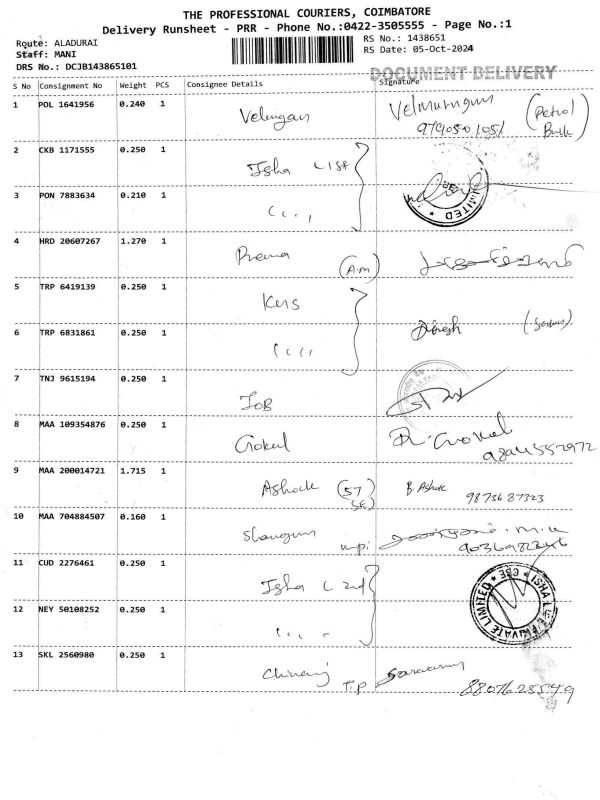 THE PROFESSIONAL COURIERS, COIMBATORE
Delivery Runsheet - PRR - Phone No.:0422-3505555 - Page No.:1
Route: ALADURAI
RS No.: 1438651
Staff: MANI
RS Date: 05-Oct-2024
DRS No.: DCJB143865101
DOCUMENT DELIVERY
S No Consignment No Weight PCS Consignee Details Signature
1 POL 1641956 0.240 1 Velmurugan (Petrol
2 CKB 1171555 0.250 1 Isha
3 PON 7883634 0.210 1 〃
4 HRD 20607267 1.270 1 Prema (A.M)
5 TRP 6419139 0.250 1
6 TRP 6831861 0.250 1 Dinesh
7 TNJ 9615194 0.250 1 IOB
8 MAA 109354876 0.250 1 Gokul R. Gokul
9 MAA 200014721 1.715 1 Ashok (57 B. Ashok
9873687323
10 MAA 704884507 0.160 1
11 CUD 2276461 0.250 1 Isha 2nd
ISHA PRIVATE LIMITED * CBE *
12 NEY 50108252 0.250 1
13 SKL 2560980 0.250 1 Chinraj T.P
8807625549